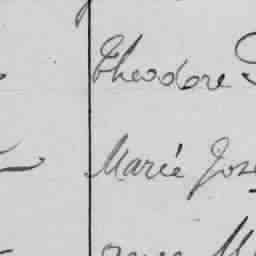 Theodore
Marié Jos